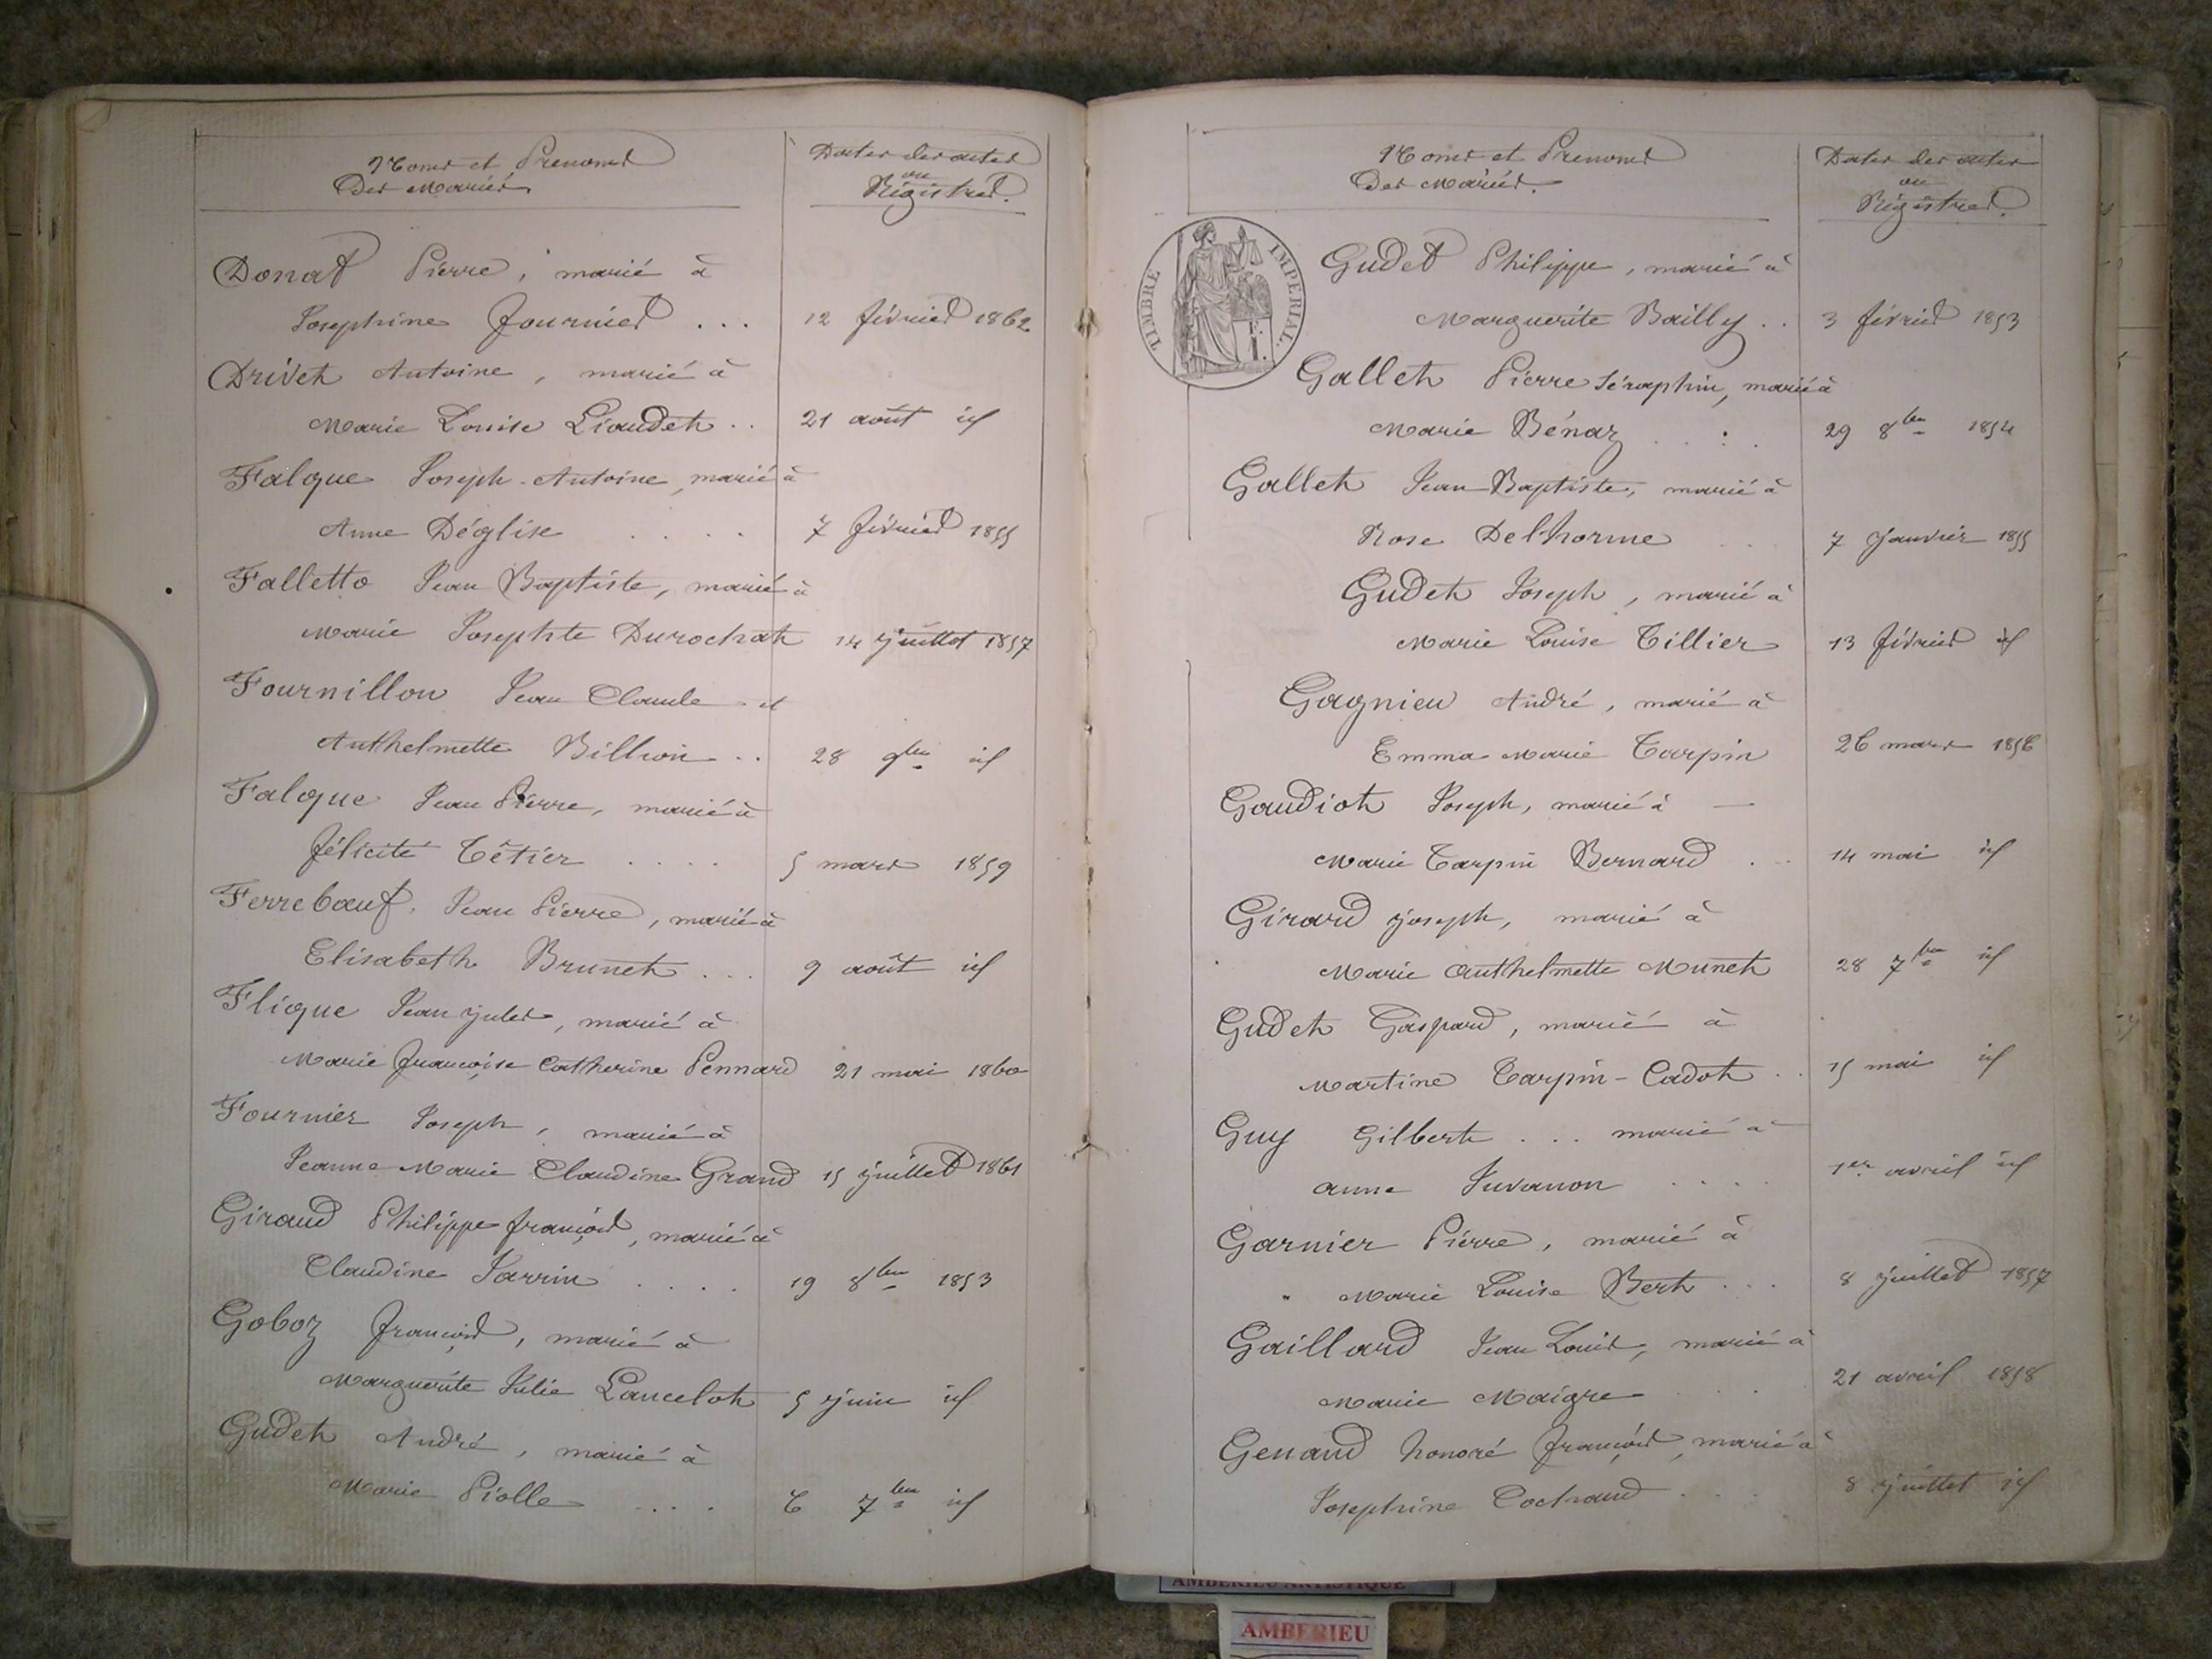 Noms et Prenoms
Des Mariés
Dates des actes
ou
Régistres.
Donat Pierre, marié à
Josephine Fournier ... 12 février 1862
Drivet Antoine, marié à
Marie Louise Liaudet .. 21 août id
Falque Joseph-Antoine, marié à
Anne Déglise .... 7 février 1855
Falletto Jean Baptiste, marié à
Marie Josephte Durochat 14 juillet 1857
Fournillon Jean Claude et
Anthelmette Billion .. 28 9bre id
Falque Jean Pierre, marié à
félicité Têtier .... 5 mars 1859
Ferrebœuf Jean Pierre, marié à
Elisabeth Brunet ... 9 août id
Flique Jean Jules, marié à
Marie françoise Catherine Pennard 21 mai 1860
Fournier Joseph, marié à
Jeanne Marie Claudine Grand 15 juillet 1861
Giraud Philippe françois, marié à
Claudine Sarrin .... 19 8bre 1853
Goboz françois, marié à
Marguerite Julie Lancelot 5 juin id
Gudet André, marié à
Marie Piolle .... 6 7bre id
Noms et Prenoms
Des Mariés.
Dates des actes
ou
Régistres.
TIMBRE IMPERIAL.
Gudet Philippe, marié à
Marguerite Bailly .. 3 février 1853
Gallet Pierre Séraphin, marié à
Marie Bénaz ... 29 8bre 1854
Gallet Jean Baptiste, marié à
Rose Delhorme .. 7 janvier 1855
Gudet Joseph, marié à
Marie Louise Tillier 13 février id
Gagnieu André, marié à
Emma Marie Tarpin 26 mars 1856
Gaudiot Joseph, marié à —
Marie Tarpin Bernard .. 14 mai id
Girard Joseph, marié à
Marie Anthelmette Munet 28 7bre id
Gudet Gaspard, marié à
Martine Tarpin-Cadot .. 15 mai id
Guy Gilbert ... marié à
Anne Juvanon .... 1er avril id
Garnier Pierre, marié à
" Marie Louise Bert ... 8 juillet 1857
Gaillard Jean Louis, marié à
Marie Maigre ... 21 avril 1858
Genaud honoré françois, marié à
Josephine Cochaud ... 8 juillet id
AMBERIEU ARTISTIQUE
AMBERIEU